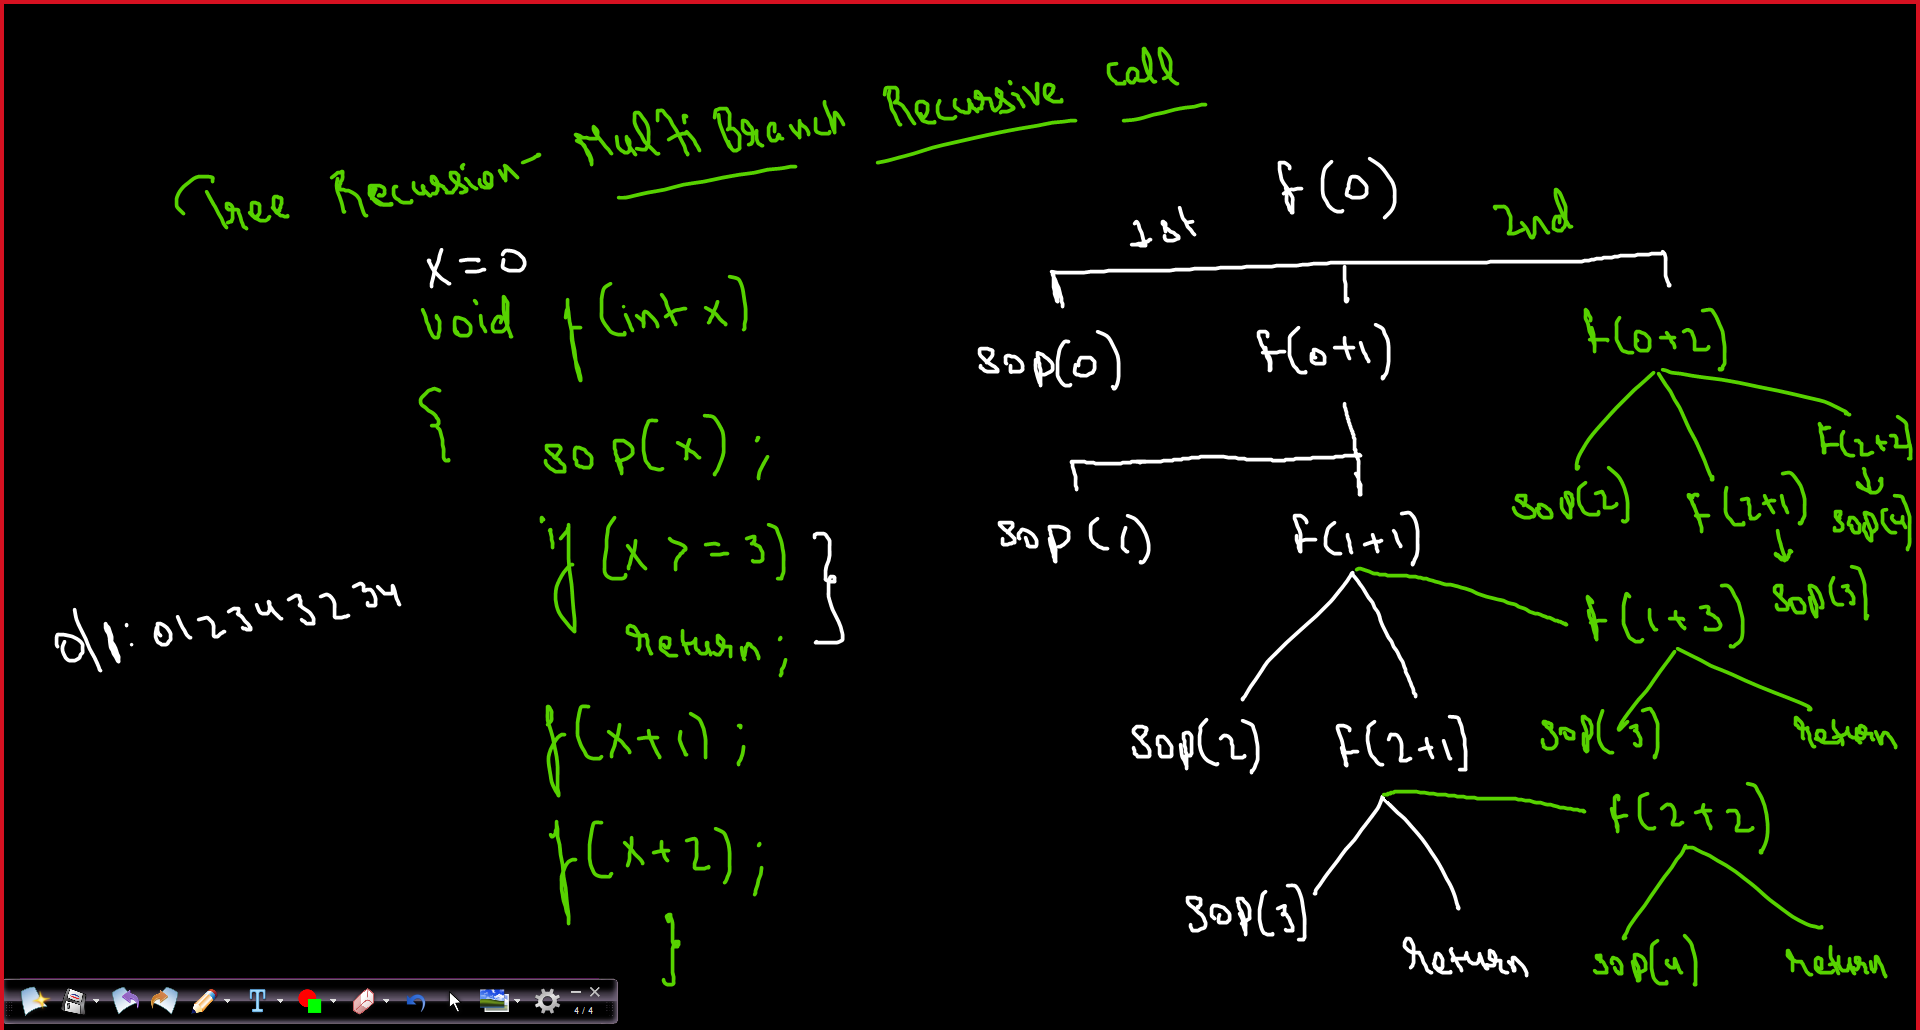 Tree Recursion- Multi Branch Recursive Call
x = 0
void f(int x)
{
sop(x);
if (x >= 3)
return;
f(x+1);
f(x+2);
}
o/p: 0 1 2 3 4 3 2 3 4
f(0)
1st
2nd
sop(0) f(0+1) f(0+2)
sop(1) f(1+1)
sop(2) f(2+1) f(2+2)
sop(3) sop(4)
f(1+3)
sop(2) f(2+1) sop(3) return
f(2+2)
sop(3) return sop(4) return
4 / 4